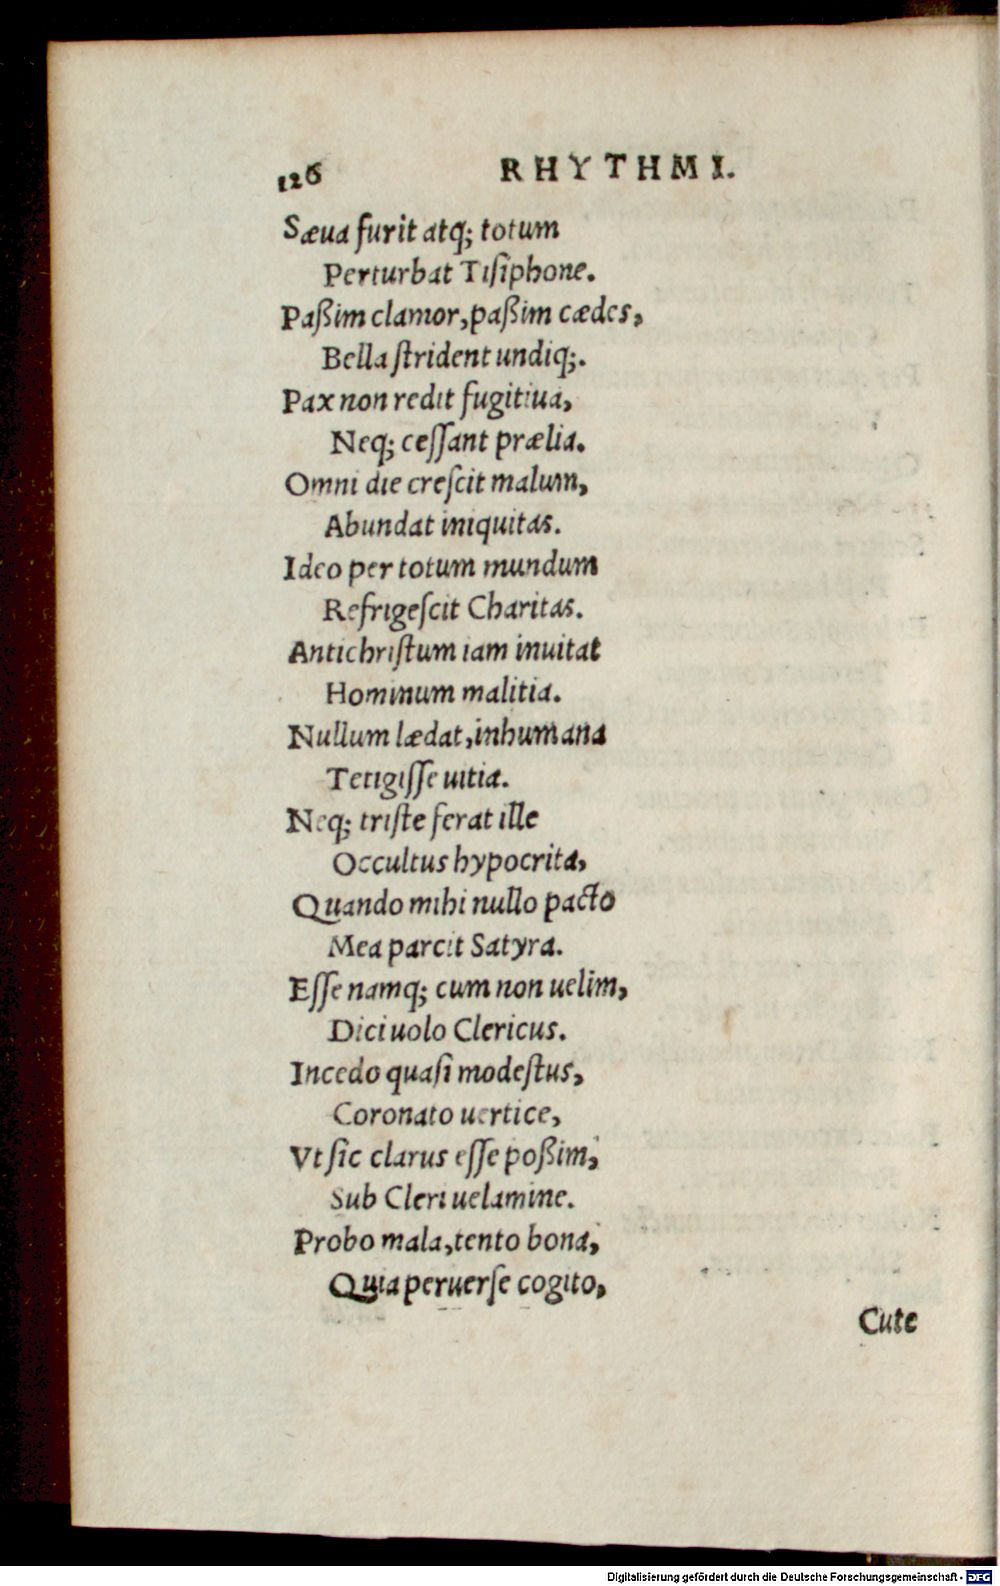 126 RHYTHMI.
Sæua furit atq; totum
Perturbat Tisiphone.
Paßim clamor, paßim cædes,
Bella strident undiq;.
Pax non redit fugitiua,
Neq; cessant prælia.
Omni die crescit malum,
Abundat iniquitas.
Ideo per totum mundum
Refrigescit Charitas.
Antichristum iam inuitat
Hominum malitia.
Nullum lædat, inhumana
Tetigisse uitia.
Neq; triste ferat ille
Occultus hypocrita,
Quando mihi nullo pacto
Mea parcit Satyra.
Esse namq; cum non uelim,
Dici uolo Clericus.
Incedo quasi modestus,
Coronato uertice,
Vt sic clarus esse poßim,
Sub Cleri uelamine.
Probo mala, tento bona,
Quia peruerse cogito,
Cute
Digitalisierung gefördert durch die Deutsche Forschungsgemeinschaft - DFG